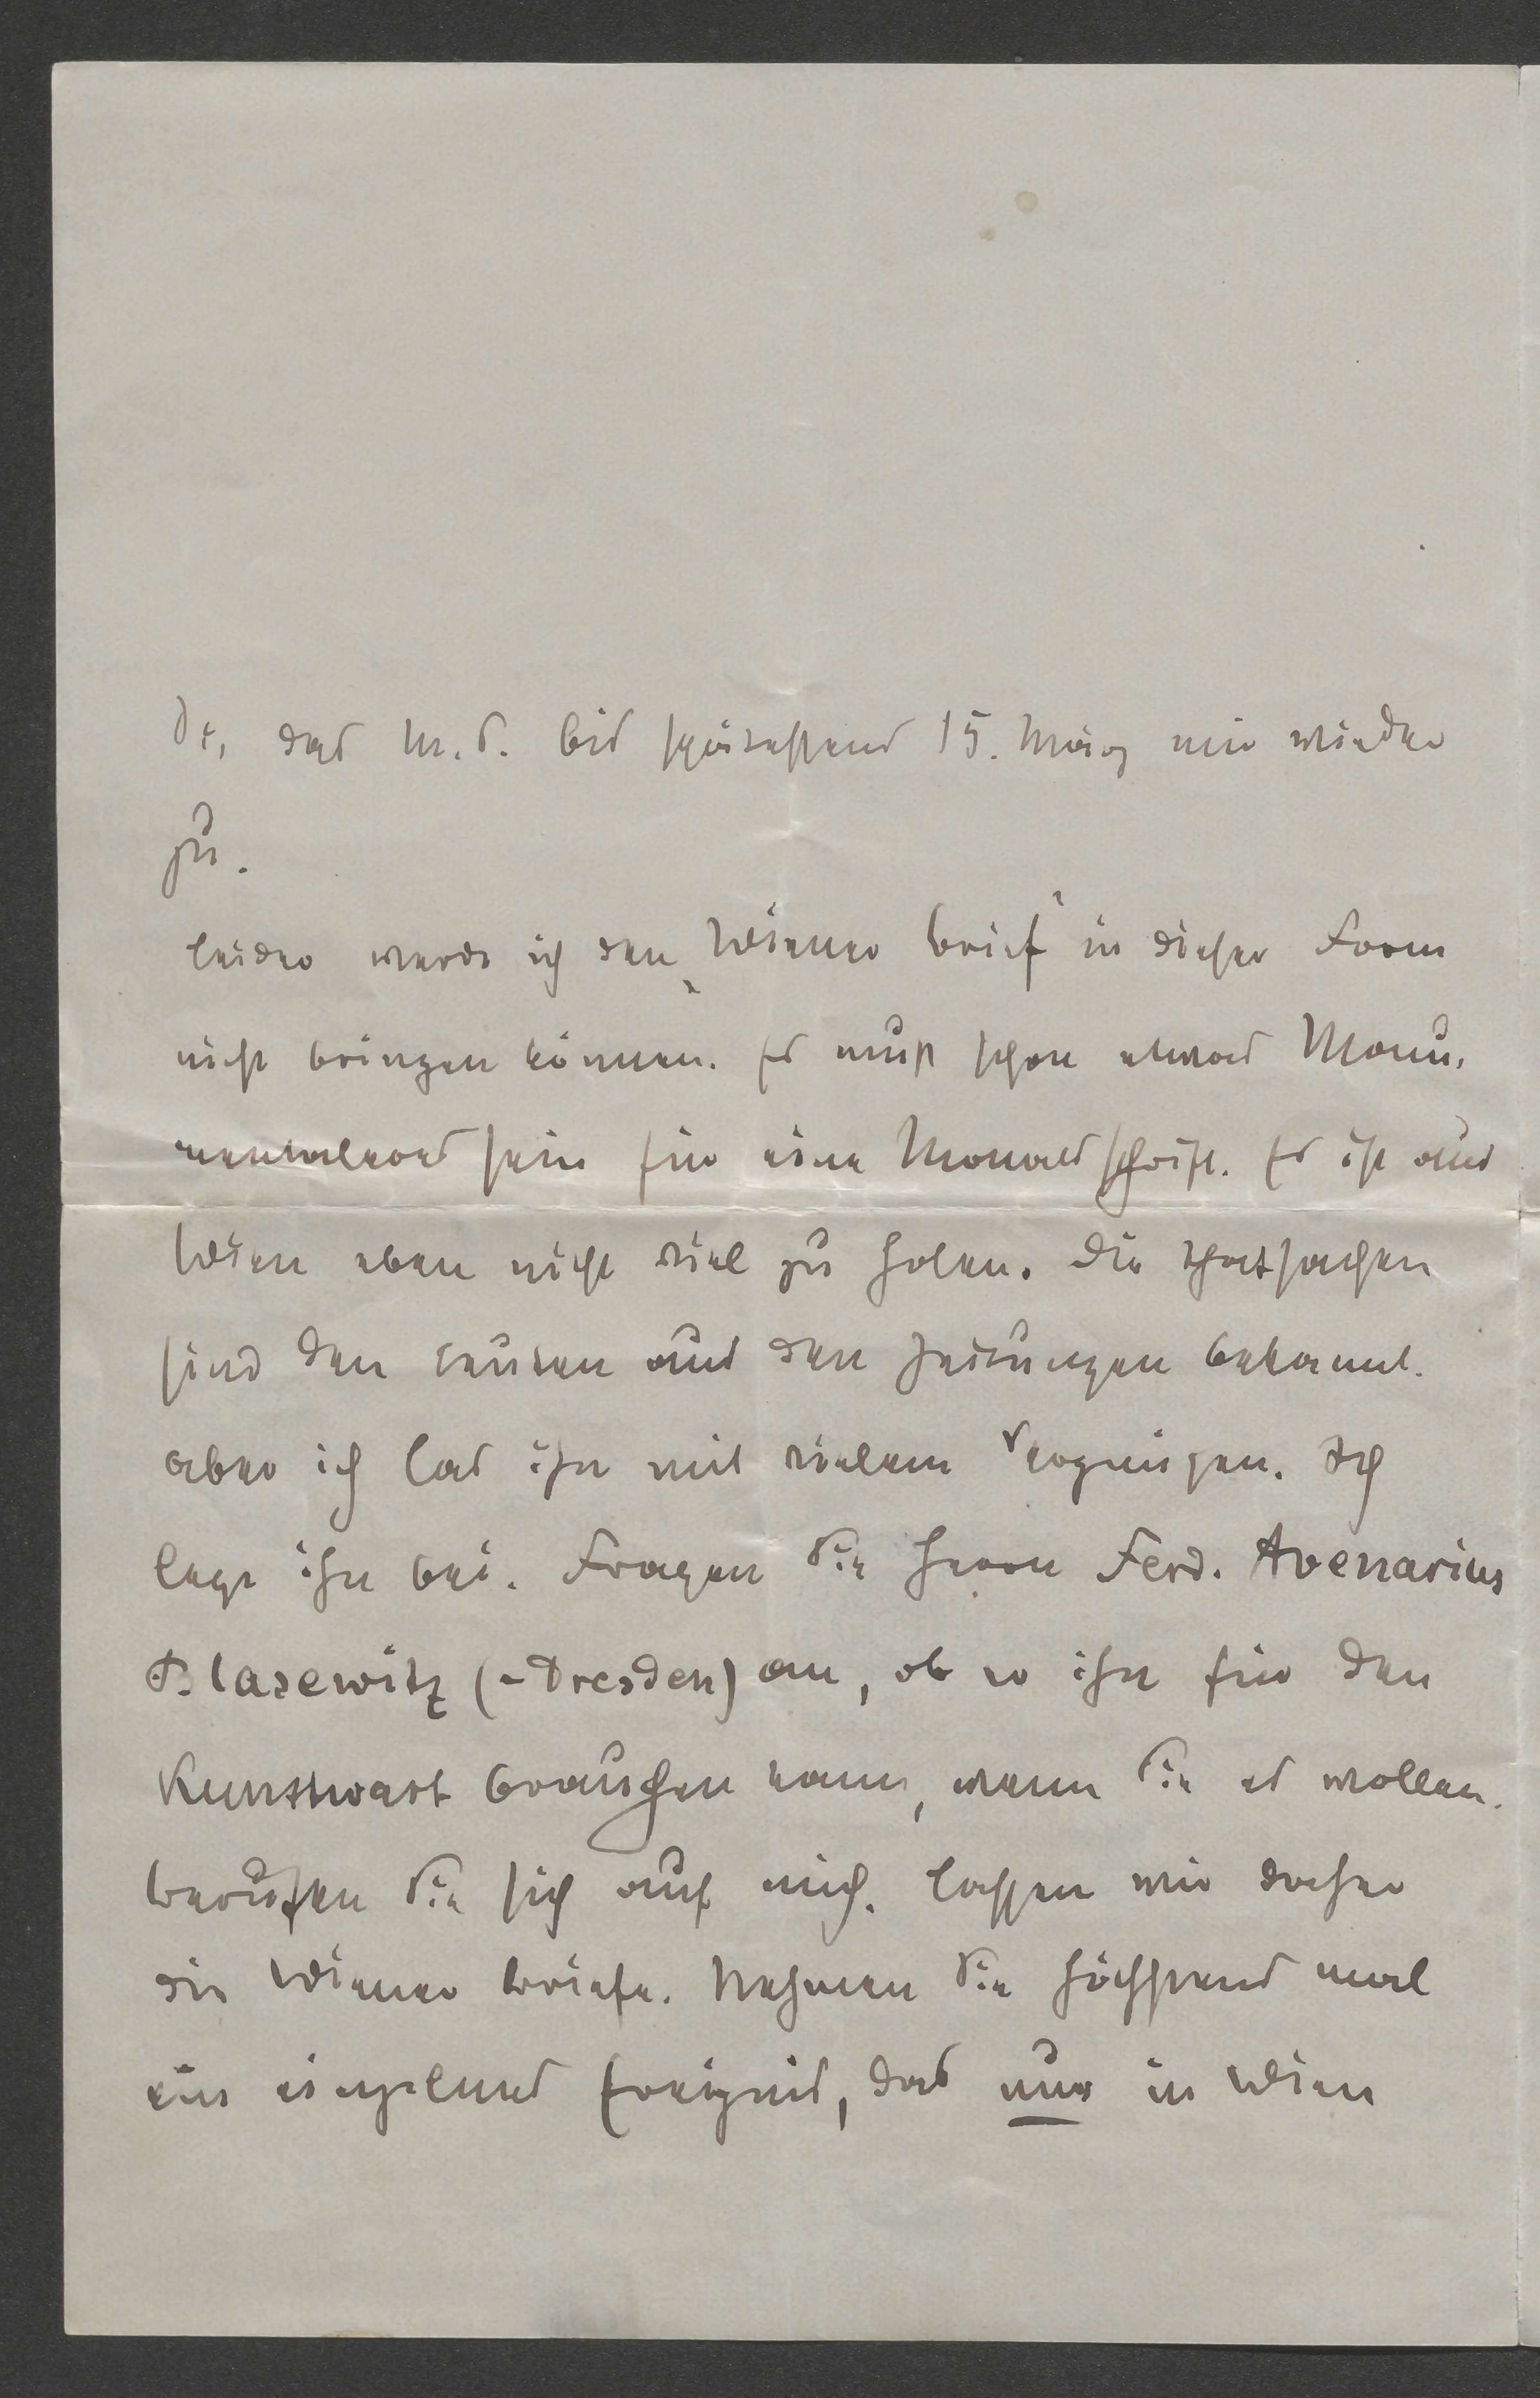 Sie, das M.S. bis spätestens 15. März mir wieder
zu.
Leider werde ich den „Wiener Brief“ in dieser Form
nicht bringen können. Es muß schon etwas Monu-
mentaleres sein für eine Monatsschrift. Es ist aus
Wien eben nicht viel zu holen. Die Thatsachen
sind den Leuten aus den Zeitungen bekannt.
Aber ich las ihn mit vielem Vergnügen. Ich
lege ihn bei. Fragen Sie Herrn Ferd. Avenarius
Blasewitz (-Dresden) an, ob er ihn für den
Kunstwart brauchen kann, wenn Sie es wollen.
Berufen Sie sich auf mich. Lassen wir daher
die Wiener Briefe. Nehmen Sie höchstens mal
ein einzelnes Ereignis, das nur in Wien